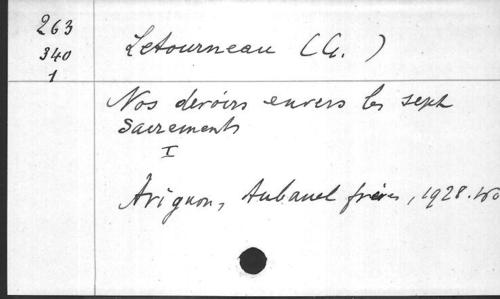 263
340
1
Letourneau (G. )
Nos devoirs envers les sept
Sacrements
I
Avignon, Aubanel frères, 1928.